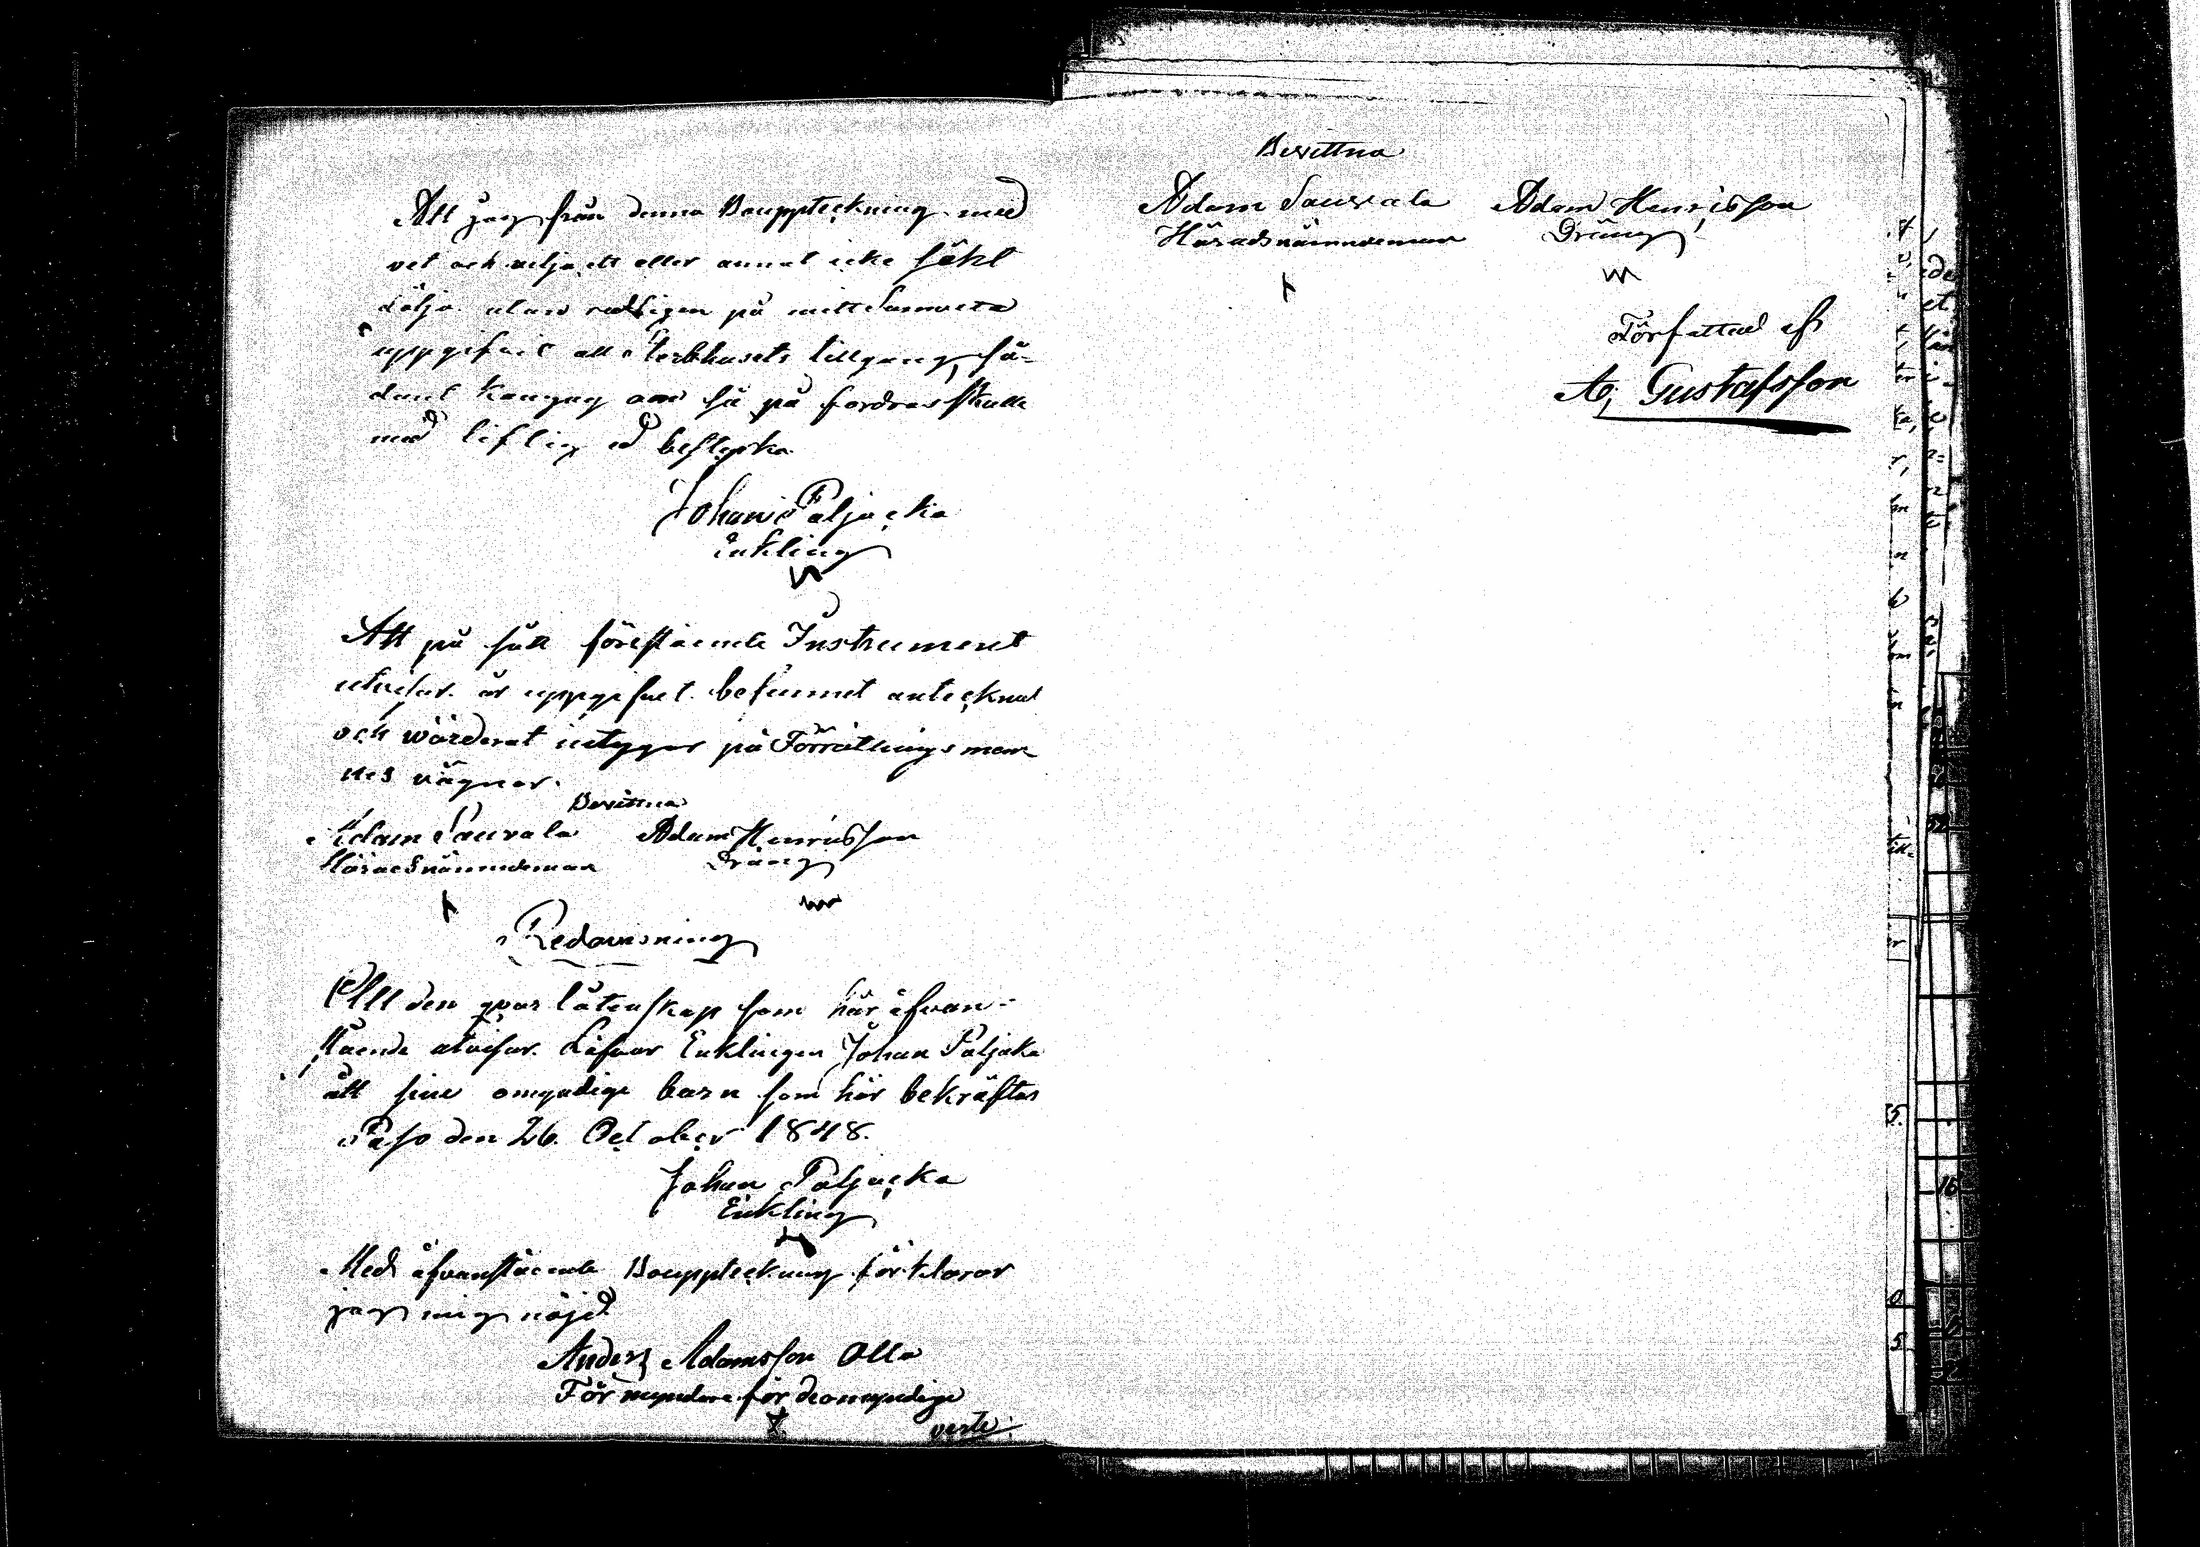 Att jag från denna Bouppteckning med
vet och vilja ett eller annat icke
dölja utan redligen på mitt Samvete
uppgifvit all Sterbhusets tillgång så-
dant kan jag om så på fordras skulle
med liflig ed bestyrka
Johan Paljacka
Enkling
Att på sätt förestående Instrument
utvisar är uppgifvet befunnet antecknat
och wärderat intygar på Förrättningsman
nes vägnar.
Bevittna
Adam Sauvala Adam Henricsson
Häradsnämndeman Dräng
Redovisning
All den qvarlåtenskap som här åfvan-
stående utvisar Enklingen Johan Paljaka
ått sine omyndige barn som här bekräftas
den 26. October 1848.
Johan Paljacka
Enkling
Med åfvanstående Bouppteckning förklarar
jag mig nöjd
Anders Adamsson Olla
Förmyndare för de omyndige
verte
Bevittna
Adam Sauvala Adam Henricsson
Häradsnämndeman Dräng
Författad af
A, Gustafsson